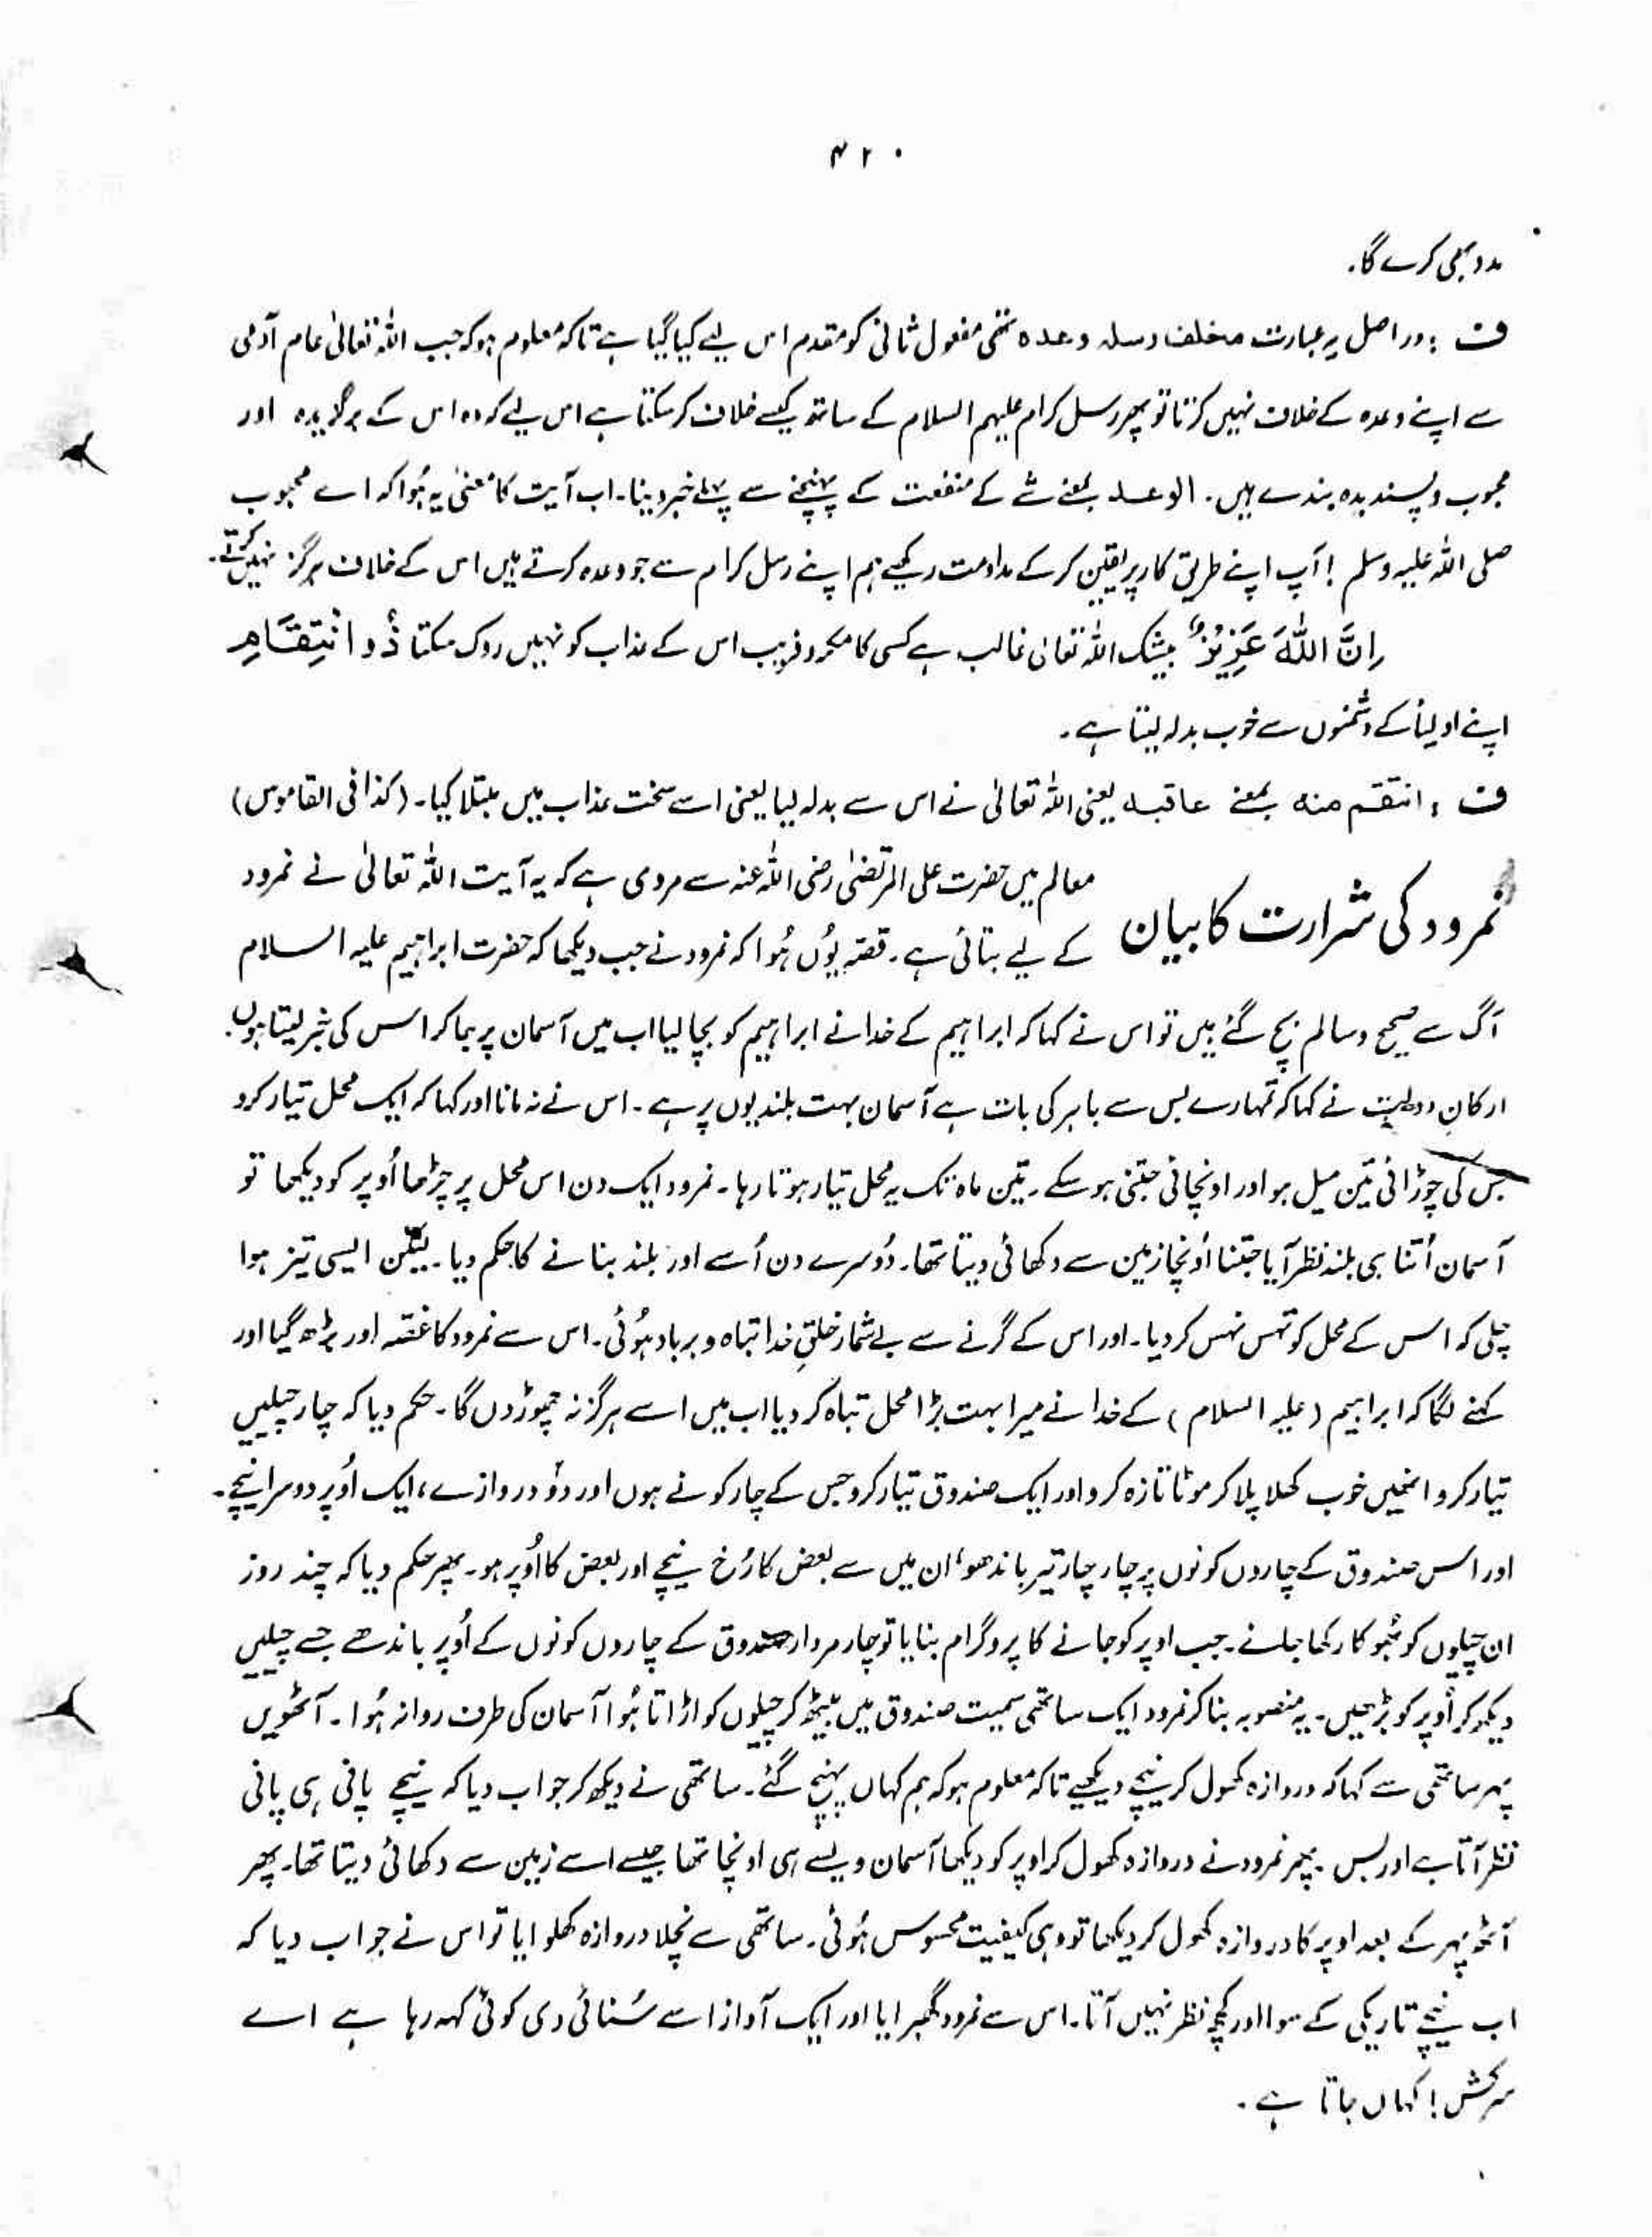 ۴۲۰
مدد بھی کرے گا۔
ف : دراصل یہ عبارت مخلف رسلہ وعدہ تھی مفعول ثانی کو مقدم اس لیے کیا گیا ہے تاکہ معلوم ہو کہ جب اللہ تعالیٰ عام آدمی
سے اپنے وعدہ کے خلاف نہیں کرتا تو پھر رسل کرام علیہم السلام کے ساتھ کیسے خلاف کر سکتا ہے اس لیے کہ وہ اس کے برگزیدہ اور
محبوب و پسندیدہ بندے ہیں۔ الوعد بمعنے شے کے منفعت کے پہنچنے سے پہلے خبر دینا۔ اب آیت کا معنیٰ یہ ہُوا کہ اے محبوب
صلی اللہ علیہ وسلم ! آپ اپنے طریق کار پر یقین کر کے مداومت رکھیے ہم اپنے رسل کرام سے جو وعدہ کرتے ہیں اس کے خلاف ہرگز نہیں کرتے۔
اِنَّ اللّٰهَ عَزِیْزٌ بیشک اللہ تعالیٰ غالب ہے کسی کا مکر و فریب اس کے عذاب کو نہیں روک سکتا ذُو انْتِقَامٍ
اپنے اولیأ کے دشمنوں سے خوب بدلہ لیتا ہے۔
ف : انتقم منه بمعنے عاقبه یعنی اللہ تعالیٰ نے اس سے بدلہ لیا یعنی اسے سخت عذاب میں مبتلا کیا۔ (کذا فی القاموس)
نمرود کی شرارت کا بیان
معالم میں حضرت علی المرتضیٰ رضی اللہ عنہ سے مروی ہے کہ یہ آیت اللہ تعالیٰ نے نمرود
کے لیے بتائی ہے۔ قصّہ یُوں ہُوا کہ نمرود نے جب دیکھا کہ حضرت ابراہیم علیہ السلام
آگ سے صحیح و سالم بچ گئے ہیں تو اس نے کہا کہ ابراہیم کے خدا نے ابراہیم کو بچا لیا اب میں آسمان پر جا کر اس کی خبر لیتا ہوں۔
ارکانِ دولت نے کہا کہ تمہارے بس سے باہر کی بات ہے آسمان بہت بلندیوں پر ہے۔ اس نے نہ مانا اور کہا کہ ایک محل تیار کرو
جس کی چوڑائی تین میل ہو اور اونچائی جتنی ہو سکے۔ تین ماہ تک یہ محل تیار ہوتا رہا۔ نمرود ایک دن اس محل پر چڑھا اُوپر کو دیکھا تو
آسمان اُتنا ہی بلند نظر آیا جتنا اُونچا زمین سے دکھائی دیتا تھا۔ دُوسرے دن اُسے اور بلند بنانے کا حکم دیا۔ لیکن ایسی تیز ہوا
چلی کہ اس کے محل کو تہس نہس کر دیا۔ اور اس کے گرنے سے بے شمار خلقِ خدا تباہ و برباد ہُوئی۔ اس سے نمرود کا غصّہ اور بڑھ گیا اور
کہنے لگا کہ ابراہیم (علیہ السلام) کے خدا نے میرا بہت بڑا محل تباہ کر دیا اب میں اسے ہرگز نہ چھوڑوں گا۔ حکم دیا کہ چار چیلیں
تیار کرو انھیں خوب کھلا پلا کر موٹا تازہ کرو اور ایک صندوق تیار کرو جس کے چار کونے ہوں اور دو دروازے، ایک اُوپر دوسرا نیچے۔
اور اس صندوق کے چاروں کونوں پر چار چار تیر باندھو، ان میں سے بعض کا رُخ نیچے اور بعض کا اُوپر ہو۔ پھر حکم دیا کہ چند روز
ان چیلوں کو بُھوکا رکھا جائے۔ جب اوپر کو جانے کا پروگرام بنایا تو چار مردار صندوق کے چاروں کونوں کے اُوپر باندھے جسے چیلیں
دیکھ کر اُوپر کو بڑھیں۔ یہ منصوبہ بنا کر نمرود ایک ساتھی سمیت صندوق میں بیٹھ کر چیلوں کو اڑاتا ہُوا آسمان کی طرف روانہ ہُوا۔ آٹھویں
پہر ساتھی سے کہا کہ دروازہ کھول کر نیچے دیکھیے تاکہ معلوم ہو کہ ہم کہاں پہنچ گئے۔ ساتھی نے دیکھ کر جواب دیا کہ نیچے پانی ہی پانی
نظر آتا ہے اور بس۔ پھر نمرود نے دروازہ کھول کر اوپر کو دیکھا آسمان ویسے ہی اونچا تھا جیسے اسے زمین سے دکھائی دیتا تھا۔ پھر
آٹھ پہر کے بعد اوپر کا دروازہ کھول کر دیکھا تو وہی کیفیت محسوس ہُوئی۔ ساتھی سے نچلا دروازہ کھلوایا تو اس نے جواب دیا کہ
اب نیچے تاریکی کے سوا اور کچھ نظر نہیں آتا۔ اس سے نمرود گھبرایا اور ایک آواز اسے سُنائی دی کوئی کہہ رہا ہے اے
سرکش! کہاں جاتا ہے۔